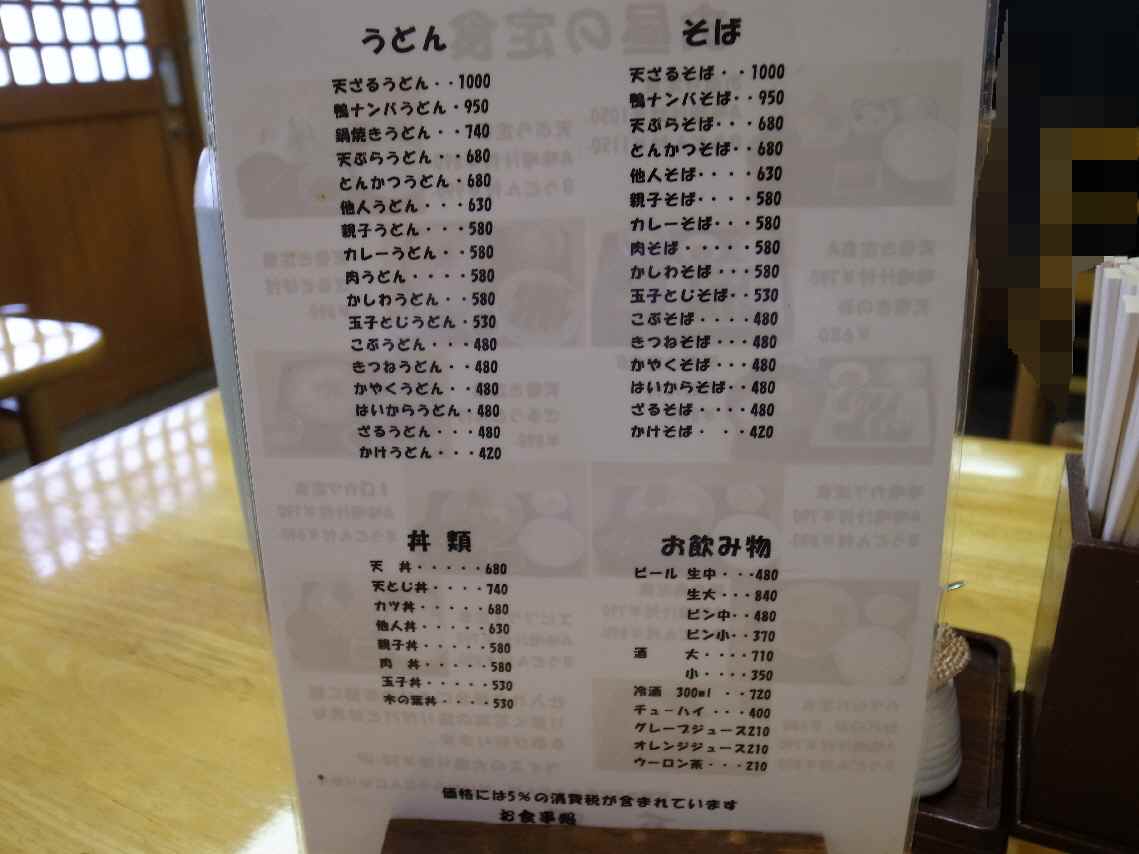 うどん
天ざるうどん・・1000
鴨ナンバうどん・950
鍋焼きうどん・・740
天ぷらうどん・・680
とんかつうどん・680
他人うどん・・・630
親子うどん・・・580
カレーうどん・・580
肉うどん・・・・580
かしわうどん・・580
玉子とじうどん・530
こぶうどん・・・480
きつねうどん・・480
かやくうどん・・480
はいからうどん・480
ざるうどん・・・480
かけうどん・・・420
そば
天ざるそば・・1000
鴨ナンバそば・・950
天ぷらそば・・・680
とんかつそば・・680
他人そば・・・・630
親子そば・・・・580
カレーそば・・・580
肉そば・・・・・580
かしわそば・・・580
玉子とじそば・・530
こぶそば・・・・480
きつねそば・・・480
かやくそば・・・480
はいからそば・・480
ざるそば・・・・480
かけそば・ ・・420
丼 類
天 丼・・・・・680
天とじ丼・・・・740
カツ丼・・・・・680
他人丼・・・・・630
親子丼・・・・・580
肉 丼・・・・・580
玉子丼・・・・・530
木の葉丼・・・・530
お飲み物
ビール 生中・・・480
生大・・・840
ビン中・・480
ビン小・・370
酒 大・・・・710
小・・・・350
冷酒 300ml ・・720
チューハイ・・・400
グレープジュース210
オレンジジュース210
ウーロン茶・・・210
価格には5%の消費税が含まれています
お食事処